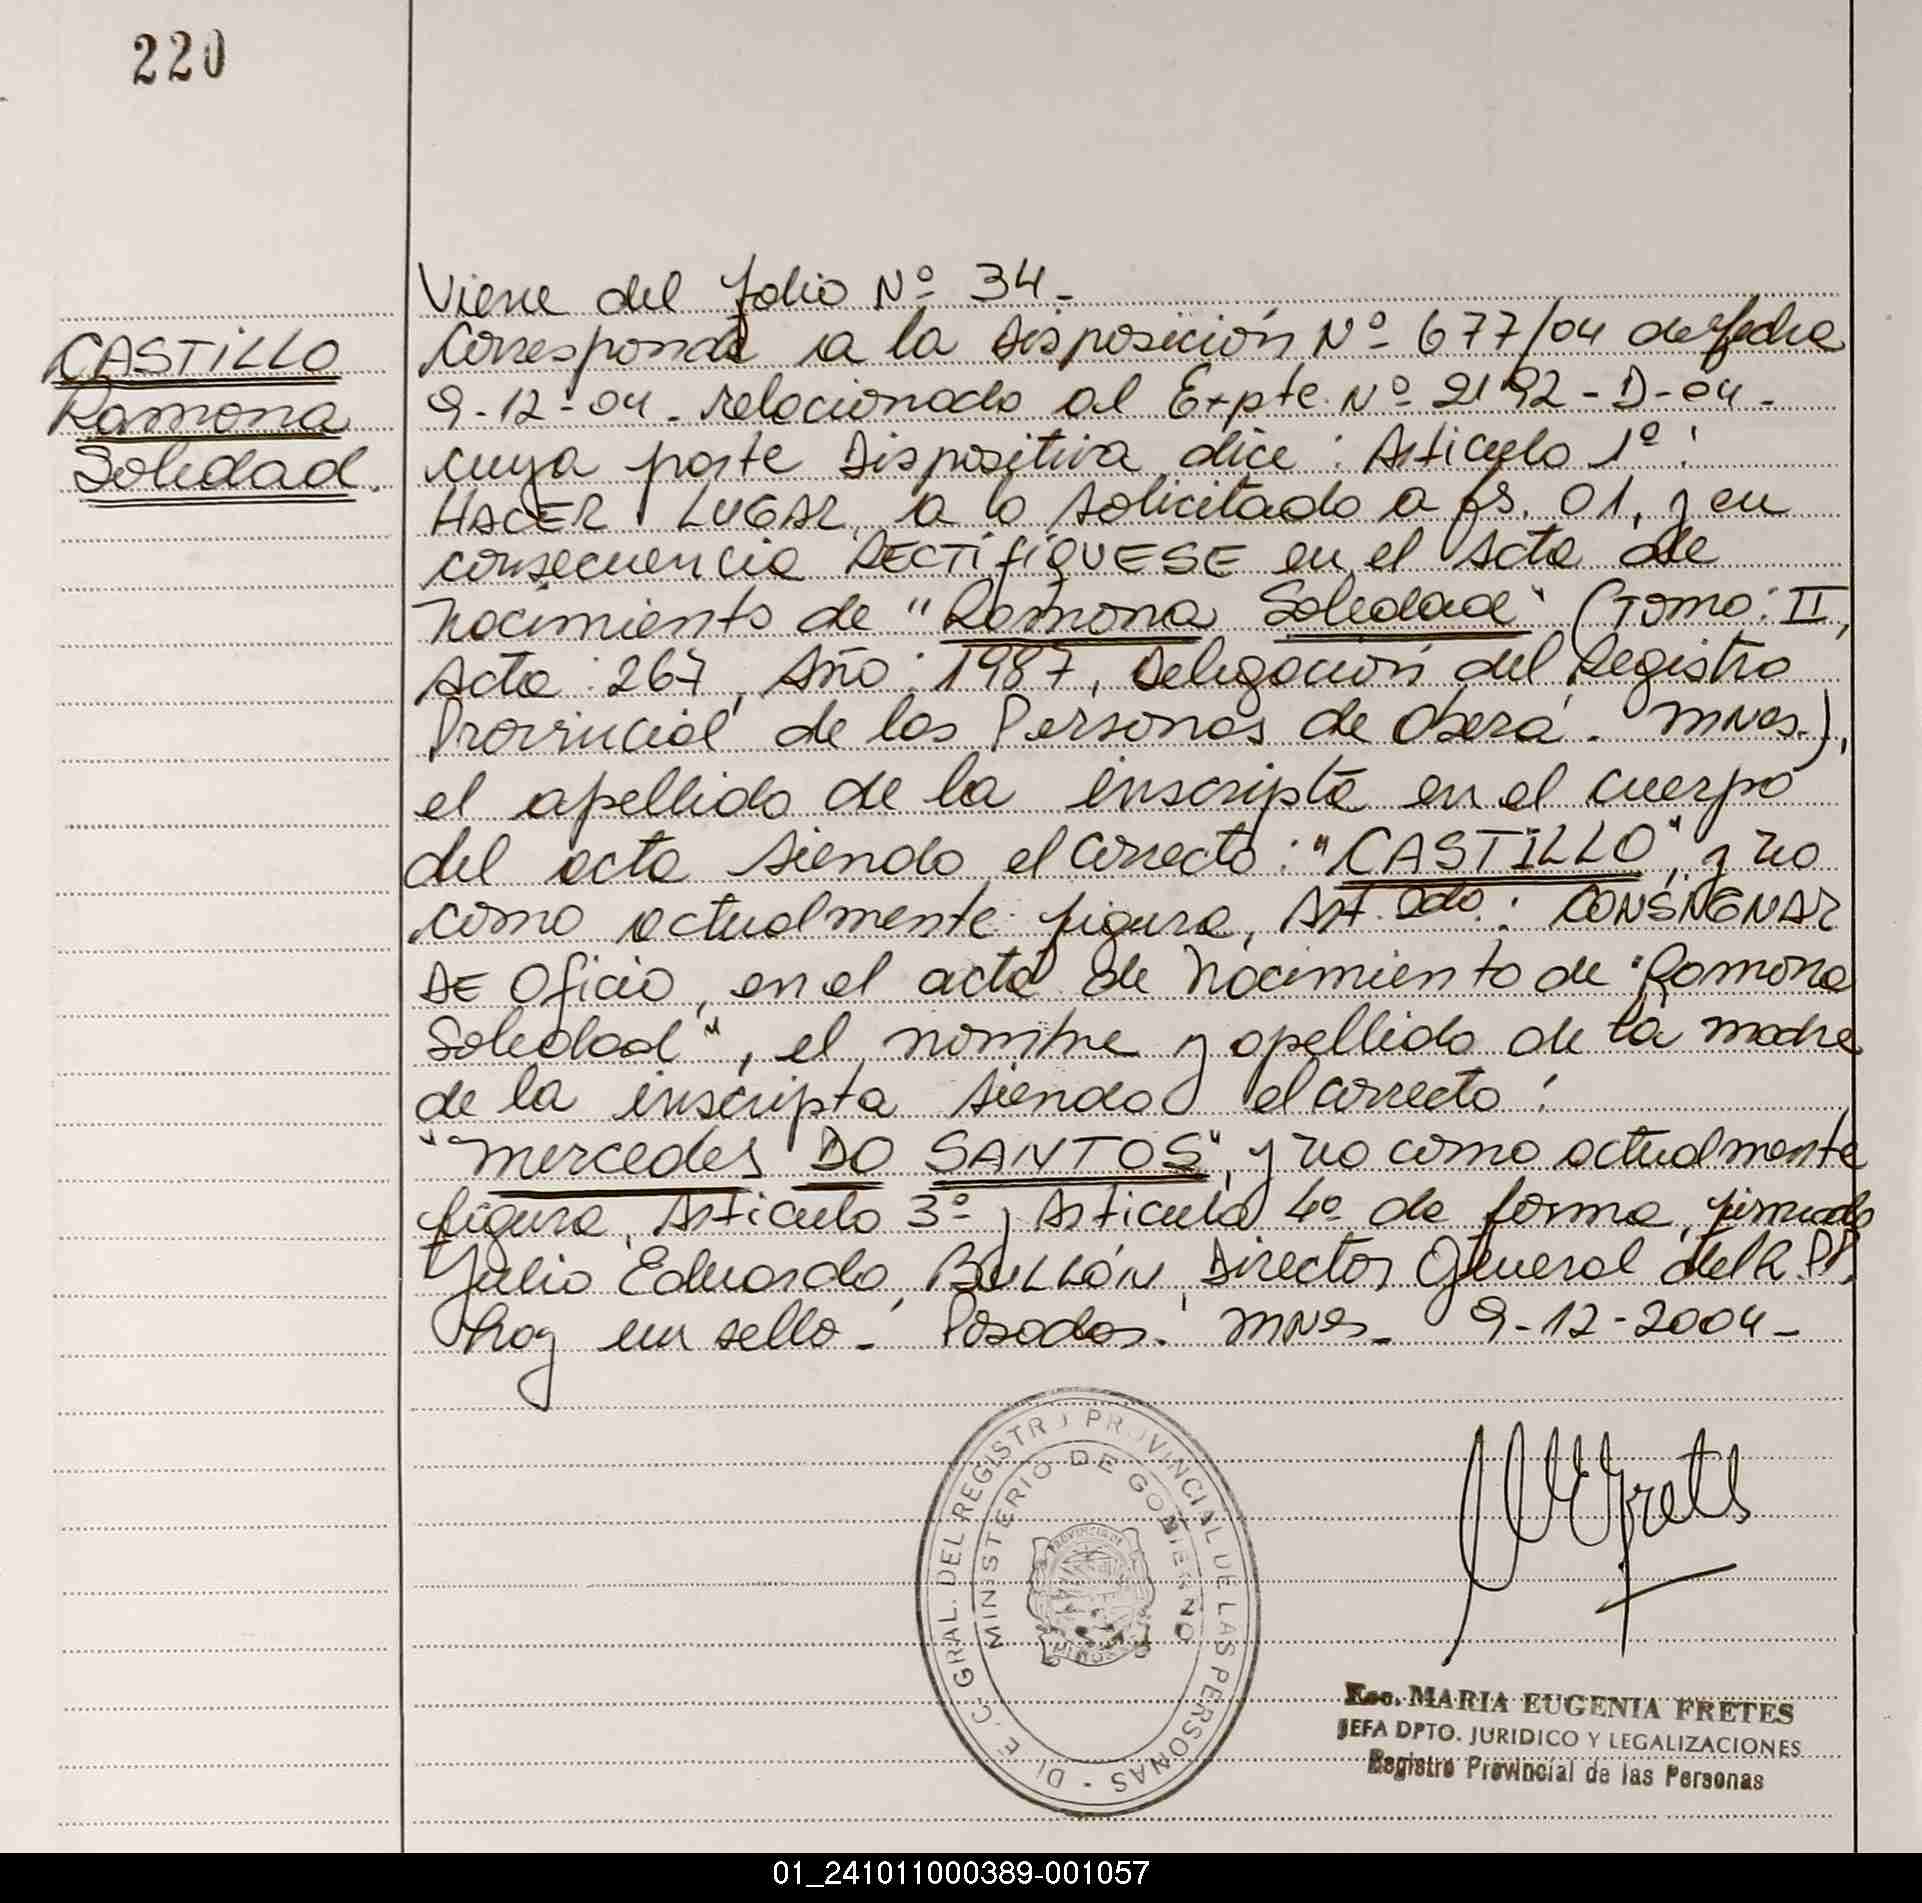 220
CASTILLO
Ramona
Soledad.
Viene del folio Nº 34-
Corresponde a la Disposición Nº 677/04 de fecha
9-12-04- relacionado al Expte. Nº 2192-D-04-
cuya parte Dispositiva dice: Articulo 1º:
HACER LUGAR a lo solicitado a fs. 01, y en
consecuencia RECTIFIQUESE en el Acta de
nacimiento de "Ramona Soledad" (Tomo: II,
Acta: 267, Año: 1987, Delegación del Registro
Provincial de las Personas de Oberá. Mnes.),
el apellido de la inscripta en el cuerpo
del acta siendo el correcto: "CASTILLO", y no
como actualmente figura, Art. 2do.: CONSNGNAR
DE Oficio, en el acta de Nacimiento de "Ramona
Soledad", el nombre y apellido de la madre
de la inscripta siendo el correcto:
"Mercedes DO SANTOS", y no como actualmente
figura, Articulo 3º y Articulo 4º de forma, firmado
Julio Eduardo BULLÓN, Director General del R.P.P.
hay un sello- Posadas. Mnes- 9-12-2004-
DIREC. GRAL. DEL REGISTRO PROVINCIAL DE LAS PERSONAS
MINISTERIO DE GOBIERNO
PROVINCIA DE
MISIONES
MEFretes
Esc. MARIA EUGENIA FRETES
JEFA DPTO. JURIDICO Y LEGALIZACIONES
Registro Provincial de las Personas
01_241011000389-001057